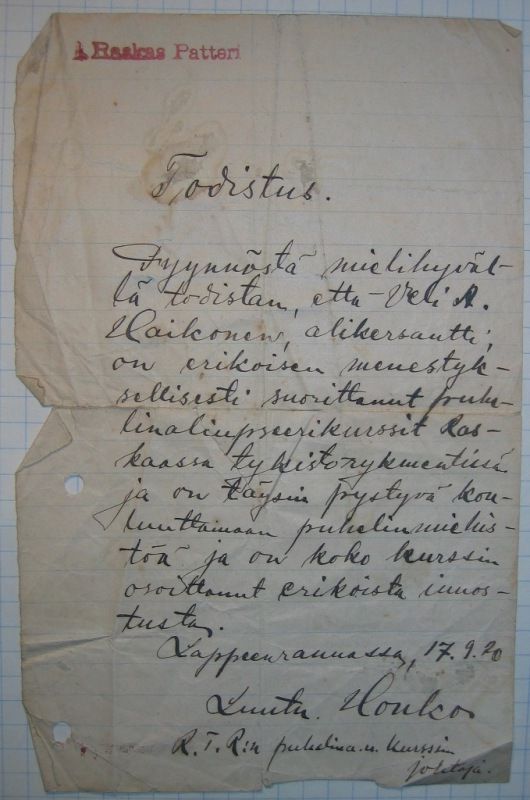 1 Raskas Patteri
Todistus.
Pyynnöstä mielihyväl-
lä todistan, että Veli A.
Haikonen, alikersantti,
on erikoisen menestyk-
sellisesti suorittanut puhe-
linaliupseerikurssit Ras-
kaassa tykistörykmentissä
ja on täysin pystyvä kou-
luuttamaan puhelinmiehis-
töä ja on koko kurssin
osoittanut erikoista innos-
tusta.
Lappeenrannassa, 17.9.20
Luutn. Honko
R.T.R:n puhelina.u. kurssin
johtaja.